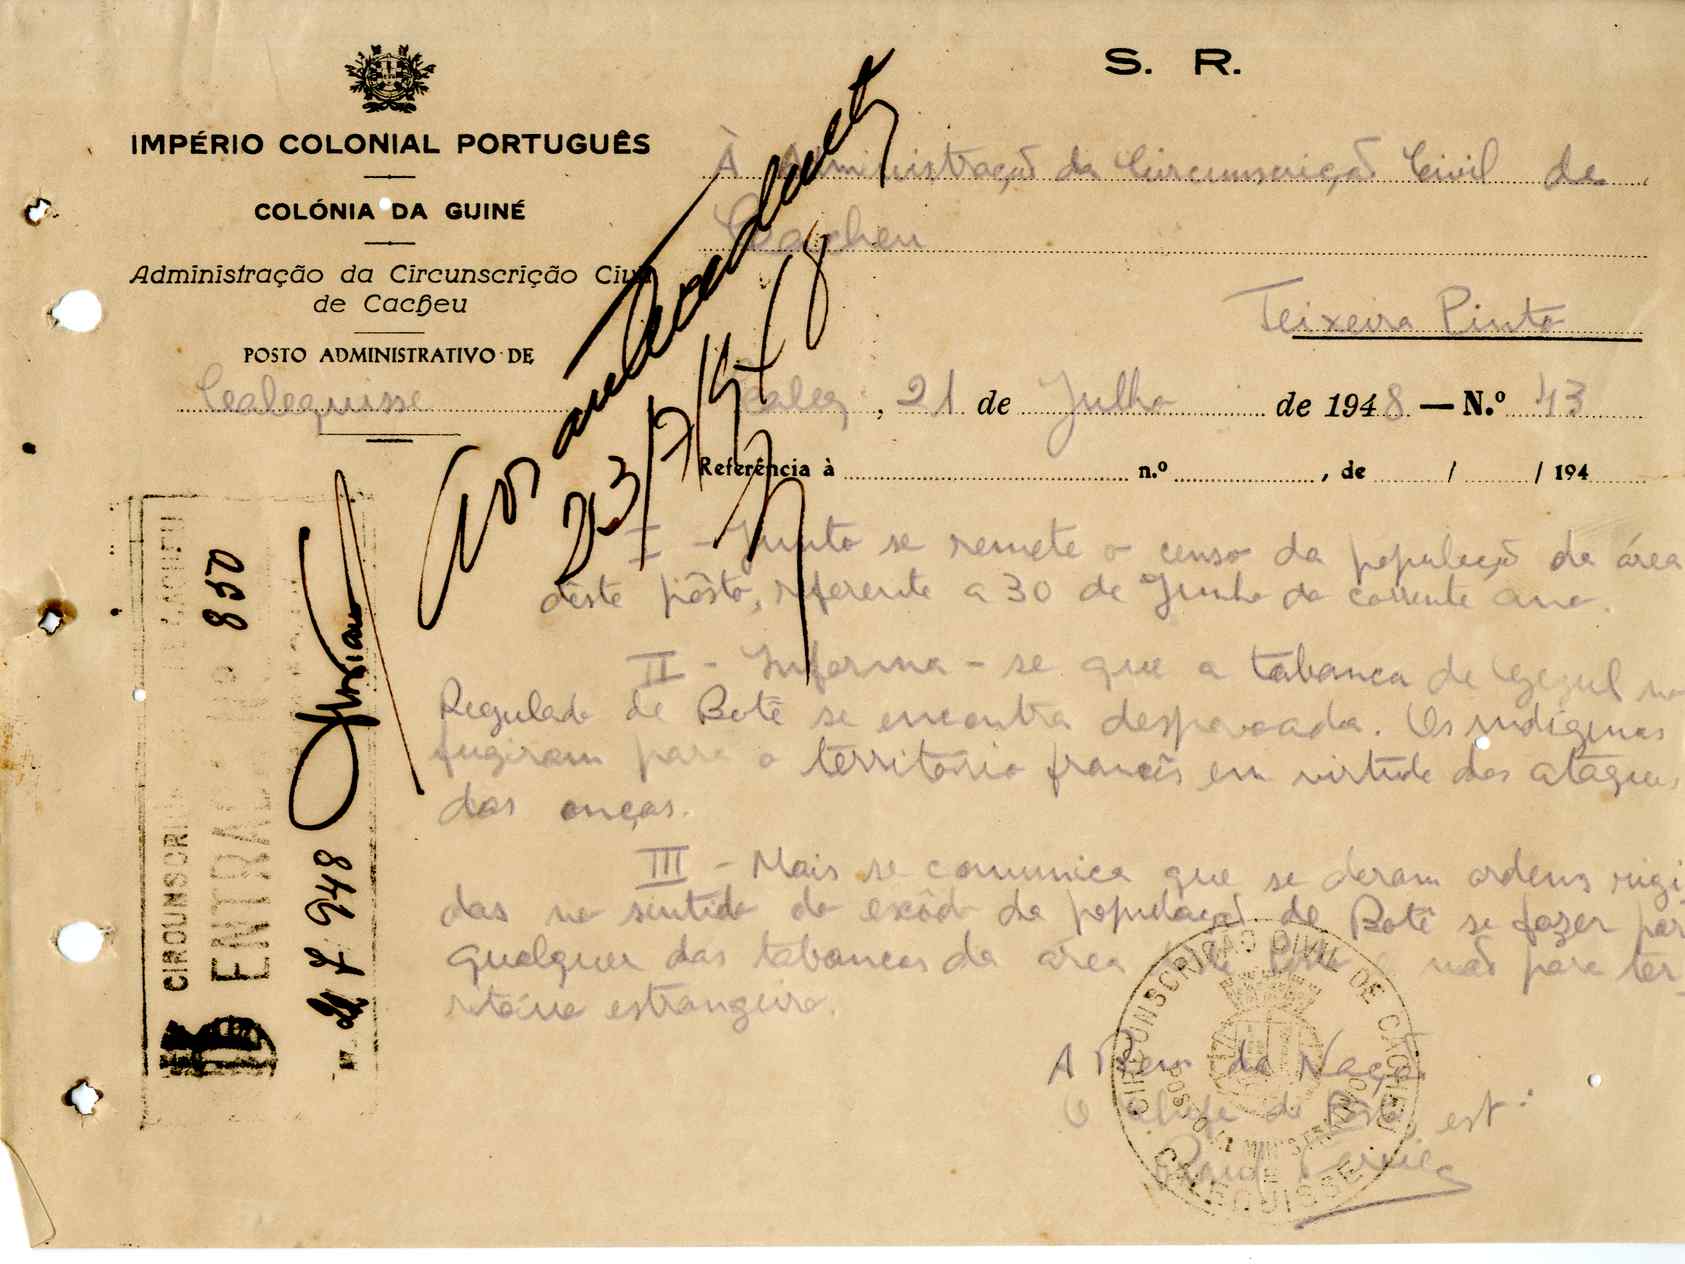 S. R.
IMPÉRIO COLONIAL PORTUGUÊS
COLÓNIA DA GUINÉ
Administração da Circunscrição Civil
de Cacheu
POSTO ADMINISTRATIVO DE
Calequisse
À Administração da Circunscrição Civil de
Cacheu
Teixeira Pinto
Caleq , 21 de Julho de 1948 — N.º 43
Referência à n.º , de / / 194
23/7/948
I - Junto se remete o censo da população da área
dêste pôsto, referente a 30 de Junho do corrente ano.
II - Informa-se que a tabanca de no
Regulado de Botê se encontra despovoada. Os indígenas
fugiram para o território francês em virtude dos ataques
das onças.
III - Mais se comunica que se deram ordens rigi
das no sentido do exôdo da população de Botê se fazer por
qualquer das tabancas da area dêste Pôsto e não para ter-
ritório estrangeiro.
A Bem da Nação
O Chefe de Pôsto, estº
CIRCUNSCRI
ENTRA
Nº 850
21 7 948
CIRCUNSCRIÇÃO CIVIL DE CACHEU
POSTO ADMINISTRATIVO
DE
CALEQUISSE